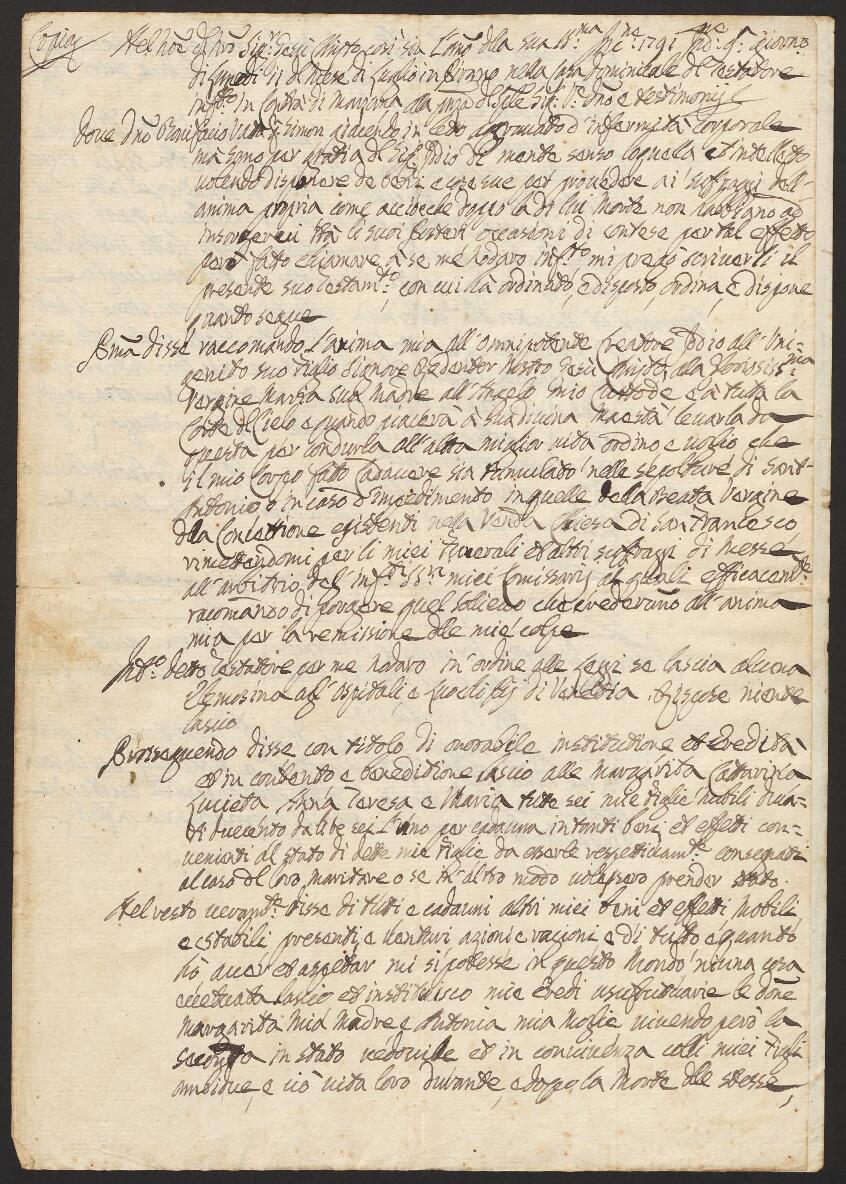 Copia
Nel nõe del nro Sigr. Gesù Christo, così sia l'ano della sua 1791 Ind. giorno
di Lunedì 11 del Mese di Luglio in nella Casa dominicale del Testatore
infto. in Contrà di alla pnza delli Sig. e testimonij
Dove Dno Bonifacio Simon giacendo in letto aggravato d'infermità corporale
ma sano per gratia del Sig. Iddio di mente senso loquella et intelletto
volendo disponere de beni e cose sue per provedere ai suffraggi dell'
anima propria come acciochè doppo la di lui Morte non habbiano ad
insorgere trà li suoi posteri occasioni di contese per tal effetto
però fatto chiamare à se me Nodaro infto. mi pregò scriverli il
presente suo testamto., con cui hà ordinato, e disposto, ordina, e dispone
quanto segue
Pma disse raccomando l'anima mia all'omnipotente Creatore Iddio all'Uni=
genito suo figlio Signore Redentor Nostro Gesù Christo, alla Gloriosissma
Vergine Maria sua Madre all'Angelo mio Custode e à tuta la
Corte del Cielo e quando piacerà à sua divina maestà levarla da
questa per condurla all'altra miglior vita ordino e voglio che
il mio Corpo fatto Cadavere sia tumulato nelle sepolture di Sant'
Antonio, o in caso d'impedimento in quelle della Beata Vergine
della Concettione esistenti nella Venda Chiesa di San Francesco
rimettendomi per li miei funerali et altri suffraggi di Messe
all'arbitrio dell' infti miei Comissarij ai quali efficacemte.
racomando di porgere quel solievo che crederano all'anima
mia per la remissione delle mie colpe
Into. detto Testatore per me Nodaro in ordine alle Leggi se lascia alcuna
elemosina agl'Ospitali, e Luochi Pij di Venetia rispose niente
lascio
Prossequendo disse con titolo di onorabile instituttione et eredità
et in contento e beneditione lascio alle Margarita Cattarina
Lucieta, Anna Teresa e Maria tute sei mie figlie nubili duca=
ti duecento da lire sei l'uno per cadauna in tanti beni et effetti con=
venienti al stato di dette mie figlie da esserle respettivamte. consegnati
al caso del loro maritare o se in altro modo volessero prender stato.
Nel resto veramte. disse di tuti e cadauni altri miei beni et effetti mobili
e stabili presenti, e venturi azioni e ragioni e di tutto e quanto
hò aver et aspetar mi si potesse in questo Mondo niuna cosa
eccetuata lascio et instituisco mie Eredi usufrutuarie le done
Margarita Mia Madre e Antonia mia Moglie vivendo però la
seconda in stato vedovile et in convivenza colli miei figli
ambidue, e ciò vita loro durante, e doppo la Morte delle stesse,